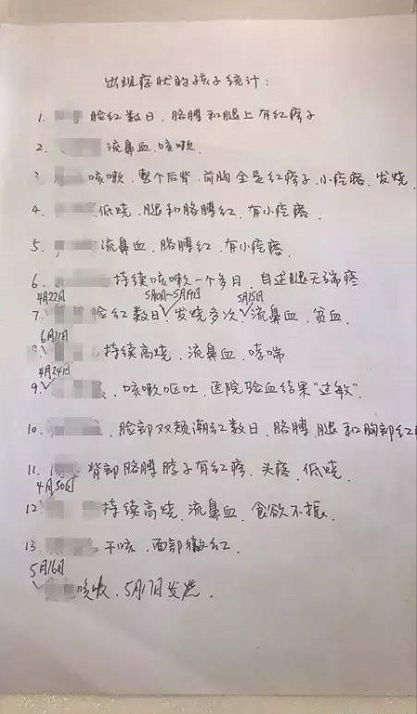 出现症状的孩子统计：
1. 脸红数日、胳膊和腿上有红疹子
2. 流鼻血、咳嗽.
3 咳嗽、整个后背、前胸全是红疹子、小疙瘩、发烧
4. 低烧、腿和胳膊红、有小疙瘩.
5. 流鼻血、胳膊红、有小疙瘩.
6. 持续咳嗽一个多月、自述腿无端疼
4月22日 5月15日
7. 脸红数日✓发烧多次✓流鼻血、贫血
6月11日
持续高烧、流鼻血、哮喘
4月24日
9.✓ 、咳嗽呕吐、医院验血结果“过敏”.
10. 、脸部双颊潮红数日、胳膊、腿和胸部全红
11. 背部胳膊脖子有红疹、头疼、低烧.
4月30日
12 持续高烧、流鼻血、食欲不振.
13. 干咳、面部微红.
5月16日
咳嗽、5月17日发烧.